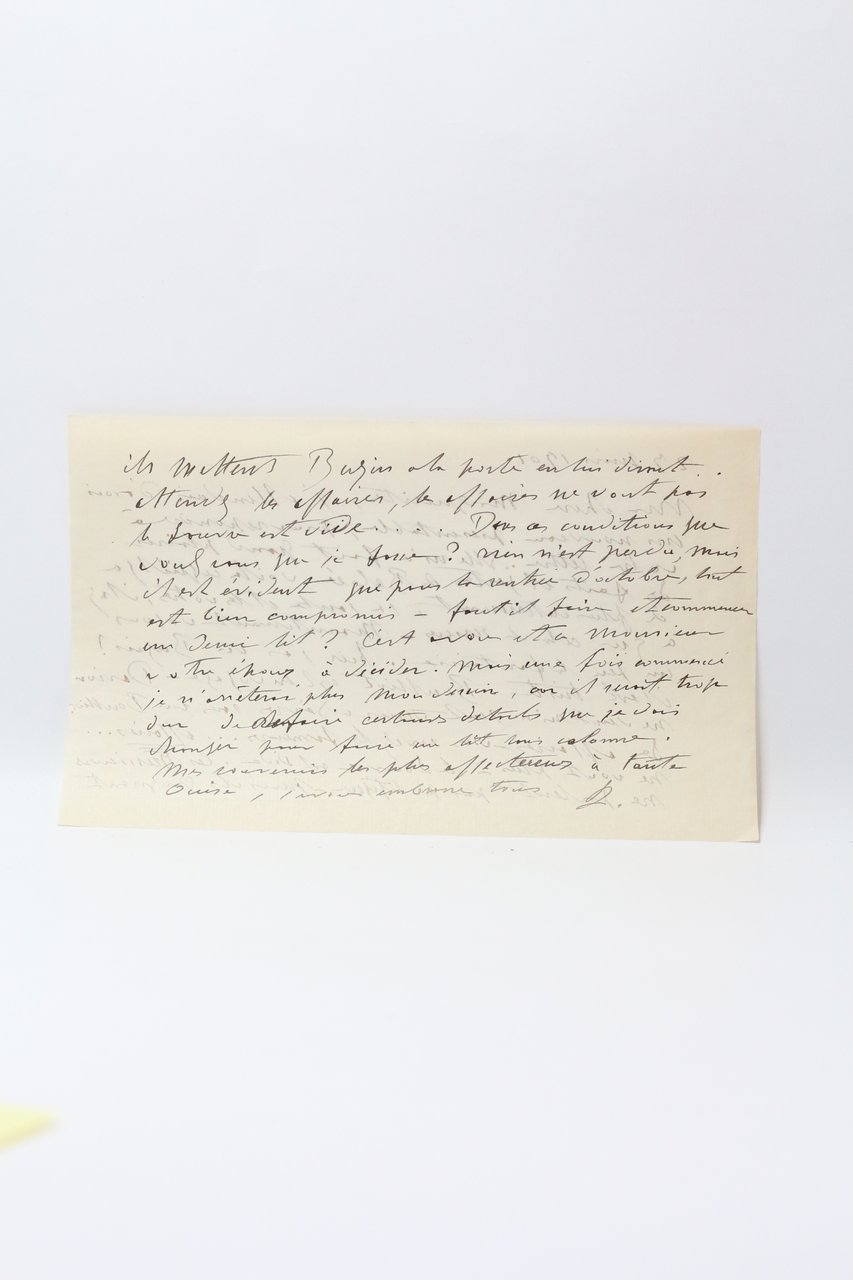 ils mettent à la porte en lui disant..
Attendez les affaires, les affaires ne vont pas
le Louvre est vide.... Dans ces conditions que
voulez vous que je fasse? rien n'est perdu, mais
il est évident que pour la rentrée d'octobre, tout
est bien compromis - faut il faire et commencer
un demi lit? C'est à vous et à monsieur
votre époux à décider. Mais une fois commencé
je n'arrêterai plus mon dessin, car il serait trop
dur de défaire certains détails que je vais
changer pour faire un lit sans colonne.
Mes souvenirs les plus affectueux à tante
Ouise, j'embrasse tous